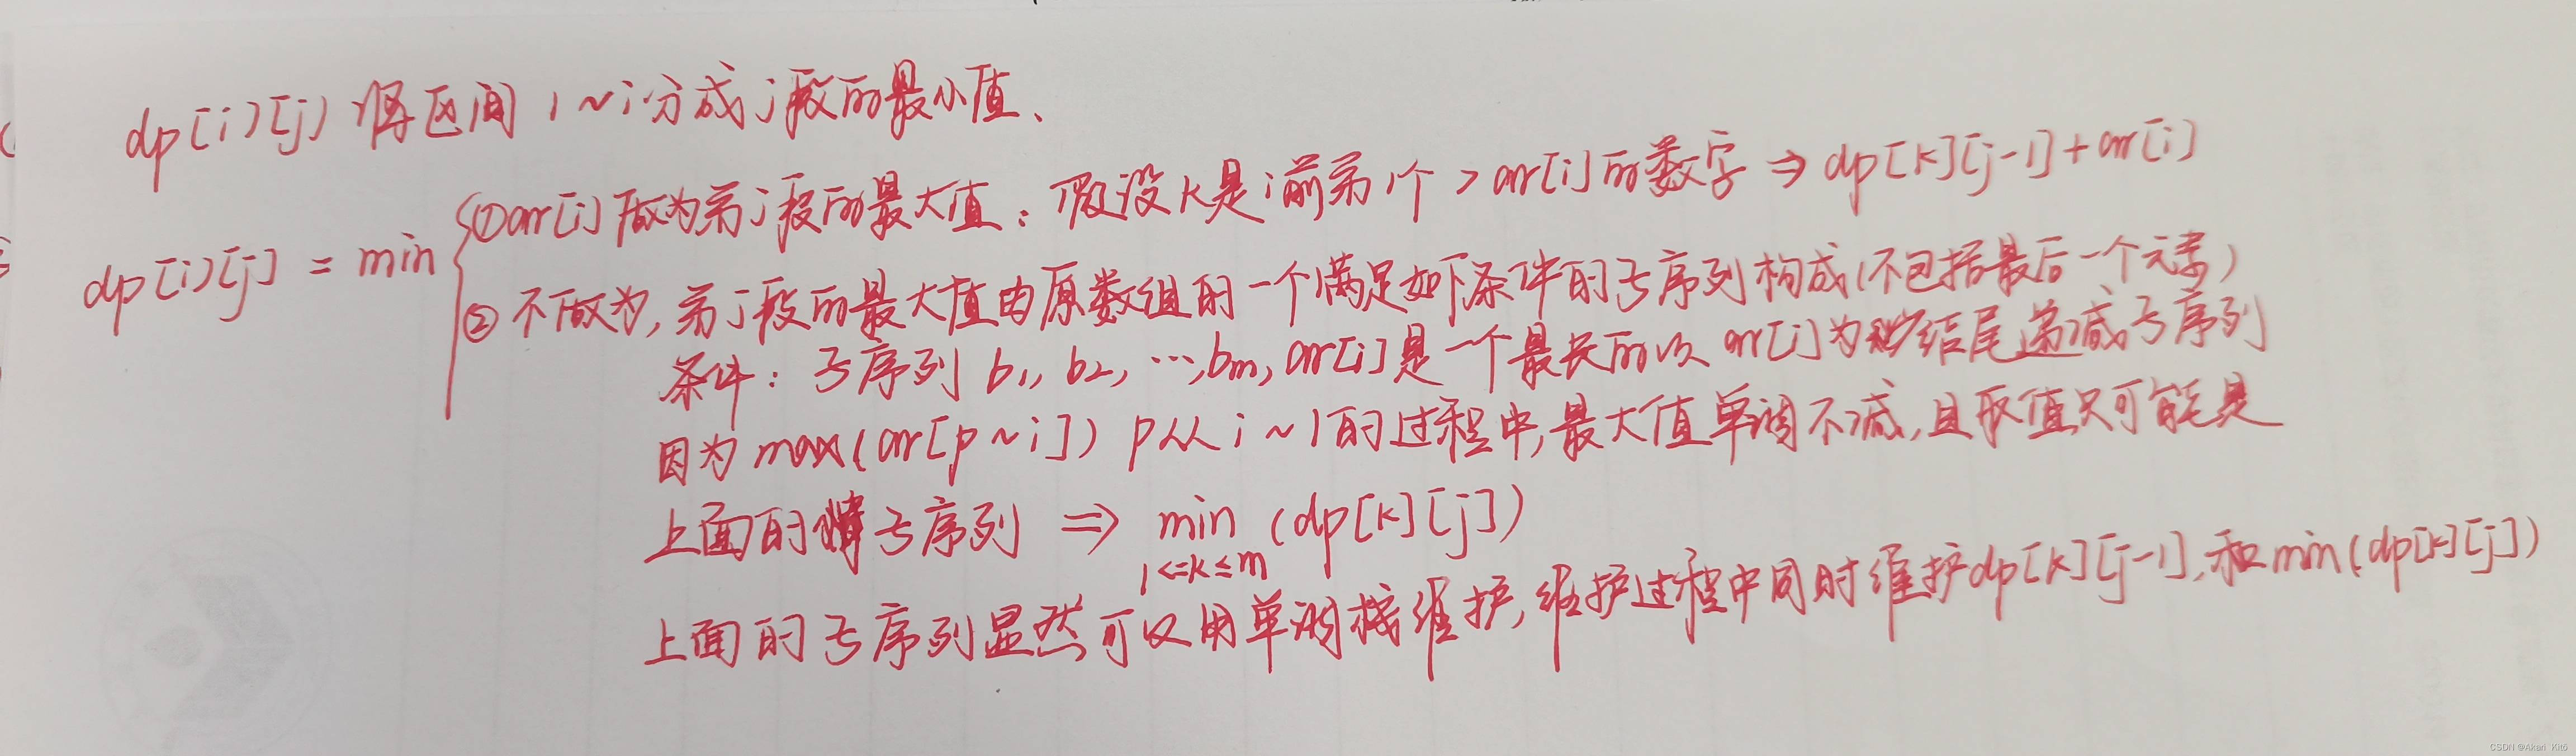 dp[i][j] 将区间 1~i 分成 j 段的最小值、
① arr[i] 做为第 j 段的最大值：假设 k 是 i 前第1个 > arr[i] 的数字 ⇒ dp[k][j-1]+arr[i]
dp[i][j] = min
② 不做为, 第 j 段的最大值由原数组的一个满足如下条件的子序列构成(不包括最后一个元素)
条件：子序列 b1, b2, ..., bm, arr[i] 是一个最长的以 arr[i] 为结尾递减子序列
因为 max(arr[p~i]) p从 i~1 的过程中, 最大值单调不减, 且取值只可能是
上面的子序列 ⇒ min (dp[k][j])
1<=k≤m
上面的子序列显然可以用单调栈维护, 维护过程中同时维护 dp[k][j-1], 和 min(dp[k][j])
CSDN @Akari Kitō